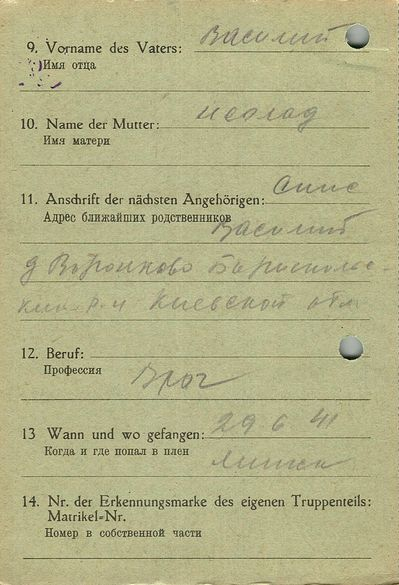 9. Vorname des Vaters: Василий
Имя отца
10. Name der Mutter:
Имя матери
11. Anschrift der nächsten Angehörigen:
Адрес ближайших родственников Василий
д Воронково Бориспольс-
Киевской обл
12. Beruf:
Профессия Врач
13 Wann und wo gefangen: 29 6 41
Когда и где попал в плен Минск
14. Nr. der Erkennungsmarke des eigenen Truppenteils:
Matrikel=Nr.
Номер в собственной части